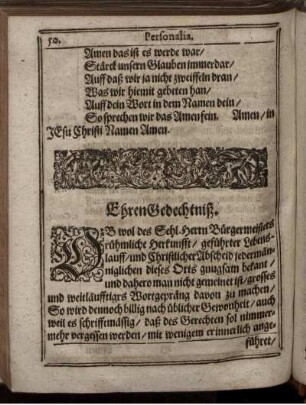 50. Personalia.
Amen das ist es werde war/
Stärck unsern Glauben immerdar/
Auff daß wir ja nicht zweiffeln dran/
Was wir hiemit gebeten han/
Auff dein Wort in dem Namen dein/
So sprechen wir das Amen fein. Amen/ in
JEsu Christi Namen Amen.
EhrenGedechtniß.
OB wol des Sehl. Herrn Bürgermeisters
rühmliche Herkunfft/ geführter Lebens-
lauff/ und Christlicher Abscheid jederman-
niglichen dieses Orts gnugsam bekant/
und dahero man nicht gemeinet ist/ grosses
und weitläufftigrs Wortgepräng davon zu machen/
So wird dennoch billig nach üblicher Gewonheit/ auch
weil es schriffemässig/ daß des Gerechten sol nimmer-
mehr vergessen werden/ mit wenigem erinnerlich ange-
führet/